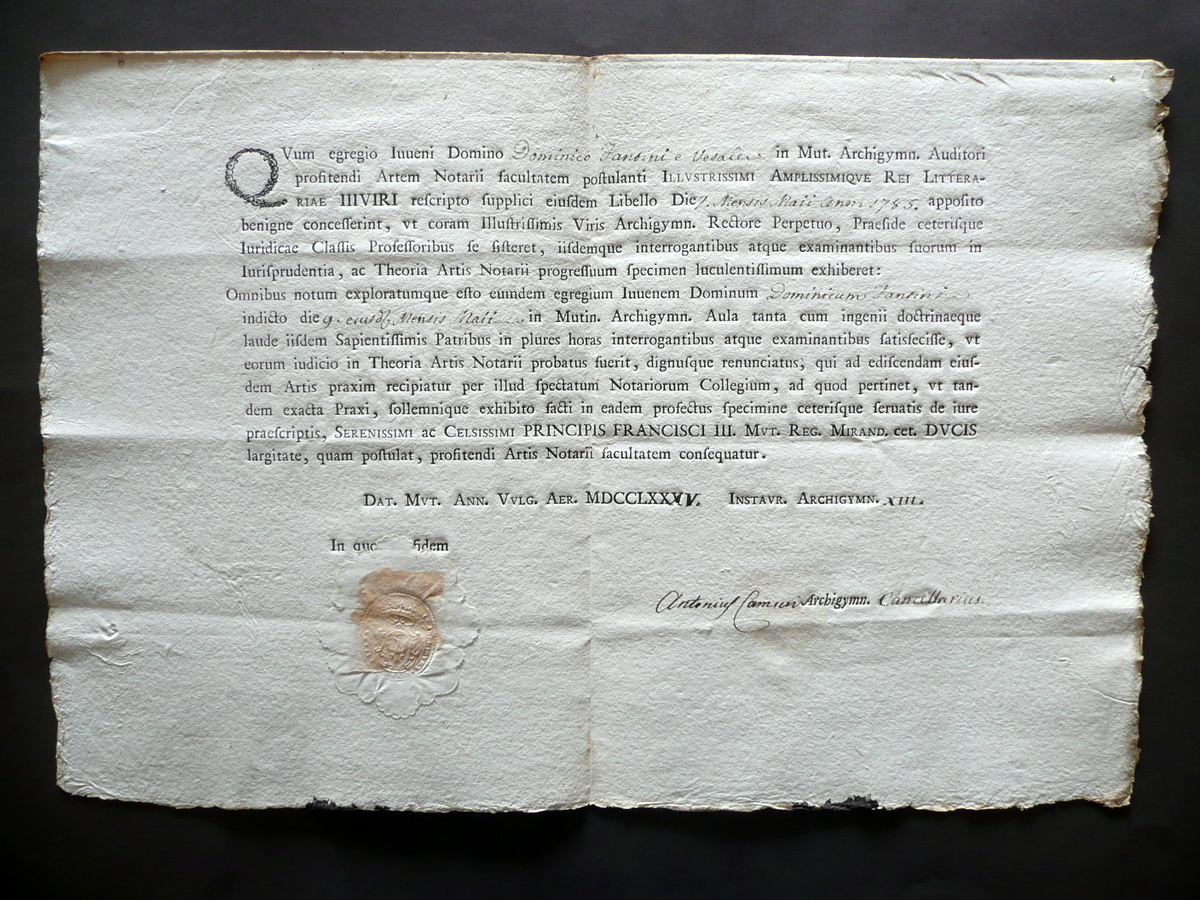 QVum egregio Iuueni Domino Dominico Fantini e in Mut. Archigymn. Auditori
profitendi Artem Notarii facultatem postulanti ILLVSTRISSIMI AMPLISSIMIQVE REI LITTERA-
RIAE IIIVIRI rescripto supplici eiusdem Libello Die 7. Mensis Maii Ann. 1785. apposito
benigne concesserint, vt coram Illustrissimis Viris Archigymn. Rectore Perpetuo, Praeside ceterisque
Iuridicae Classis Professoribus se sisteret, iisdemque interrogantibus atque examinantibus suorum in
Iurisprudentia, ac Theoria Artis Notarii progressuum specimen luculentissimum exhiberet:
Omnibus notum exploratumque esto eumdem egregium Iuuenem Dominum Dominicum Fantini
indicto die 9. eiusd. Mensis Maii in Mutin. Archigymn. Aula tanta cum ingenii doctrinaeque
laude iisdem Sapientissimis Patribus in plures horas interrogantibus atque examinantibus satisfecisse, vt
eorum iudicio in Theoria Artis Notarii probatus fuerit, dignusque renunciatus, qui ad ediscendam eius-
dem Artis praxim recipiatur per illud spectatum Notariorum Collegium, ad quod pertinet, vt tan-
dem exacta Praxi, sollemnique exhibito facti in eadem profectus specimine ceterisque seruatis de iure
praescriptis, SERENISSIMI AC CELSISSIMI PRINCIPIS FRANCISCI III. MVT. REG. MIRAND. cet. DVCIS
largitate, quam postulat, profitendi Artis Notarii facultatem consequatur.
DAT. MVT. ANN. VVLG. AER. MDCCLXXXV. INSTAVR. ARCHIGYMN. XIII.
In quo fidem
Antonius Archigymn. Cancellarius.